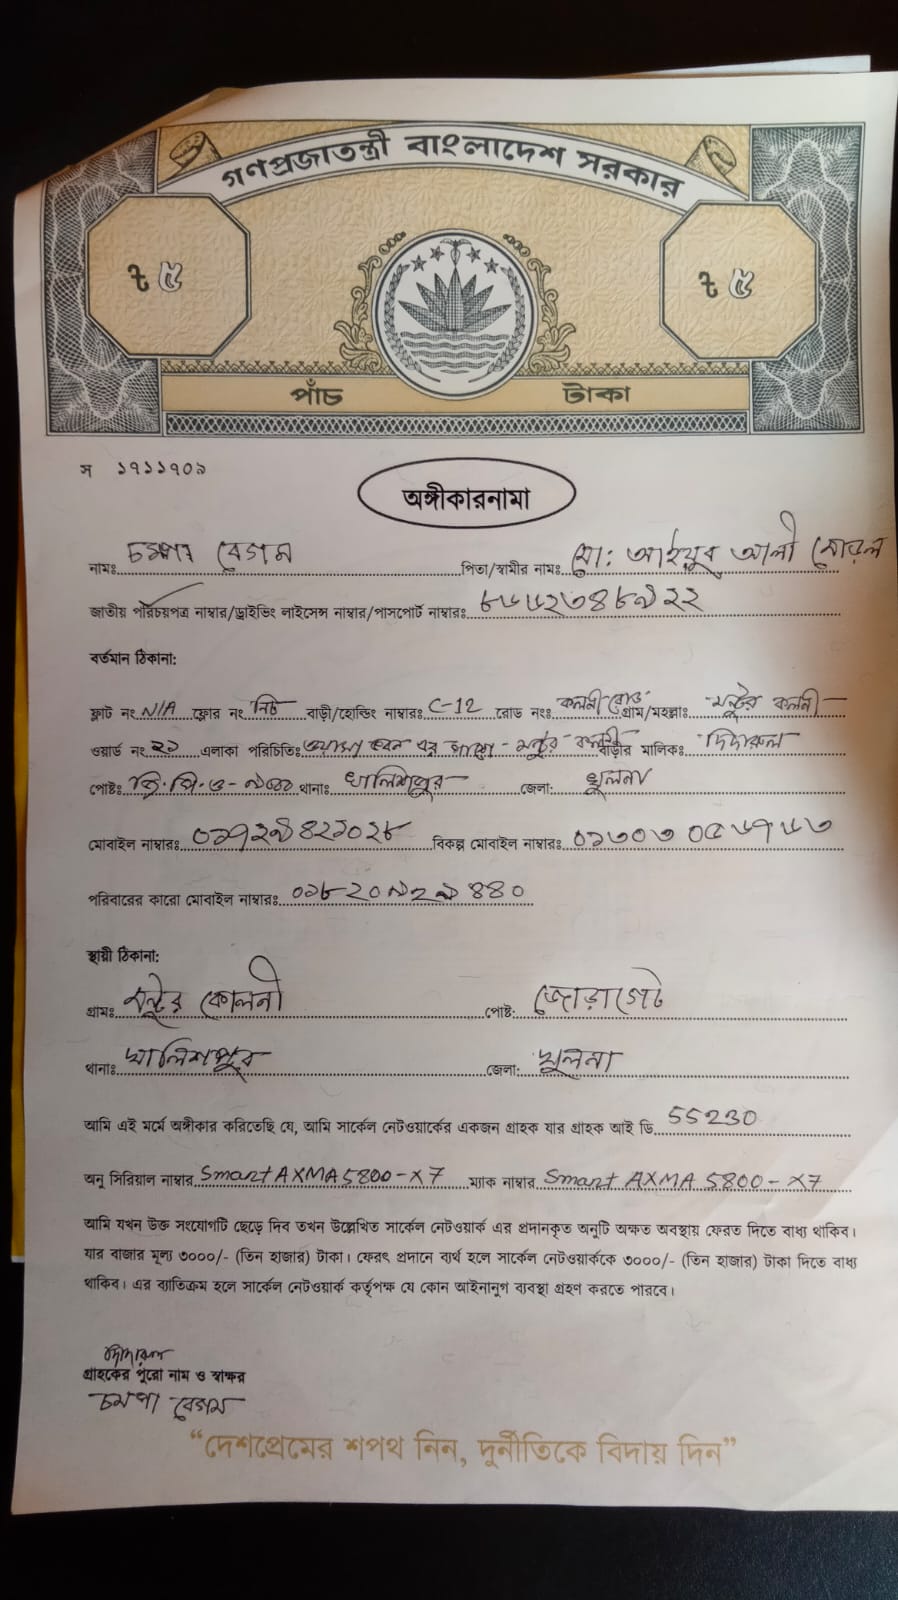 গণপ্রজাতন্ত্রী বাংলাদেশ সরকার
৳ ৫ ৳ ৫
পাঁচ টাকা
স ১৭১১৭০৯
অঙ্গীকারনামা
নামঃ চম্পা বেগম পিতা/স্বামীর নামঃ মো: আইয়ুব আলী
জাতীয় পরিচয়পত্র নাম্বার/ড্রাইভিং লাইসেন্স নাম্বার/পাসপোর্ট নাম্বারঃ
বর্তমান ঠিকানা:
ফ্লাট নং N/A ফ্লোর নং নিচ বাড়ী/হোল্ডিং নাম্বারঃ C-12 রোড নংঃ কলনী রোড গ্রাম/মহল্লাঃ মন্টুর কলনী
ওয়ার্ড নং ২১ এলাকা পরিচিতিঃ মন্টুর কলনী বাড়ীর মালিকঃ দিদারুল
পোষ্টঃ জি.পি.ও-৯০০০ থানাঃ খালিশপুর জেলা: খুলনা
মোবাইল নাম্বারঃ ০১৭২৯৪২১০২৮ বিকল্প মোবাইল নাম্বারঃ
পরিবারের কারো মোবাইল নাম্বারঃ ০১৮২০৯২৯৪৪০
স্থায়ী ঠিকানা:
গ্রামঃ মন্টুর কোলনী পোষ্ট: জোড়াগেট
থানাঃ খালিশপুর জেলা: খুলনা
আমি এই মর্মে অঙ্গীকার করিতেছি যে, আমি সার্কেল নেটওয়ার্কের একজন গ্রাহক যার গ্রাহক আই ডি 55230
অনু সিরিয়াল নাম্বার Smart AXMA 5800-X7 ম্যাক নাম্বার Smart AXMA 5800-X7
আমি যখন উক্ত সংযোগটি ছেড়ে দিব তখন উল্লেখিত সার্কেল নেটওয়ার্ক এর প্রদানকৃত অনুটি অক্ষত অবস্থায় ফেরত দিতে বাধ্য থাকিব।
যার বাজার মূল্য ৩০০০/- (তিন হাজার) টাকা। ফেরৎ প্রদানে ব্যর্থ হলে সার্কেল নেটওয়ার্ককে ৩০০০/- (তিন হাজার) টাকা দিতে বাধ্য
থাকিব। এর ব্যতিক্রম হলে সার্কেল নেটওয়ার্ক কর্তৃপক্ষ যে কোন আইনানুগ ব্যবস্থা গ্রহণ করতে পারবে।
দিদারুল
গ্রাহকের পুরো নাম ও স্বাক্ষর
চম্পা বেগম
“দেশপ্রেমের শপথ নিন, দুর্নীতিকে বিদায় দিন”